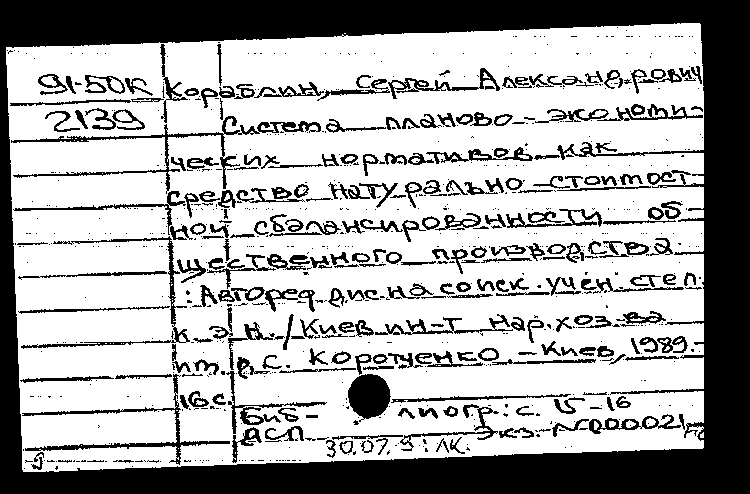 91-50К Кораблин, Сергей Александрович
2139 Система планово-экономи-
ческих нормативов как
средство натурально-стоимост-
ной сбалансированности об-
щественного производства
: Автореф. дис. на соиск. учен. степ.
к. э. н. / Киев. ин-т нар. хоз-ва
им. Д. С. Коротченко. - Киев, 1989.-
16 с.
Биб- лиогр.: с. 15-16
ДСП Экз. №000021
30.07.9 : ЛК.